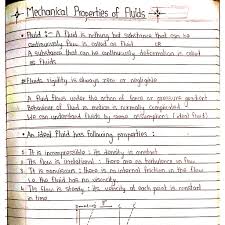 Mechanical Properties of Fluids
Fluid :- A fluid is nothing but substance that can be
continuously flow is called as Fluid OR
A substance that can be continuously deformation is called
as fluids
Fluids rigidity is always zero or negligible
A fluid flows under the action of force or pressure gradient
Behaviour of fluid in motion is normally complicated
We can understand fluids by some assumptions (ideal fluid)
An ideal fluid has following properties :
1. It is incompressible : its density is constant
2. Its flow is irrotational : there are no turbulence in flow
3. It is nonviscous : there is no internal friction in the flow
i.e. the fluid has no viscosity
4. Its flow is steady : its velocity at each point is constant
in time